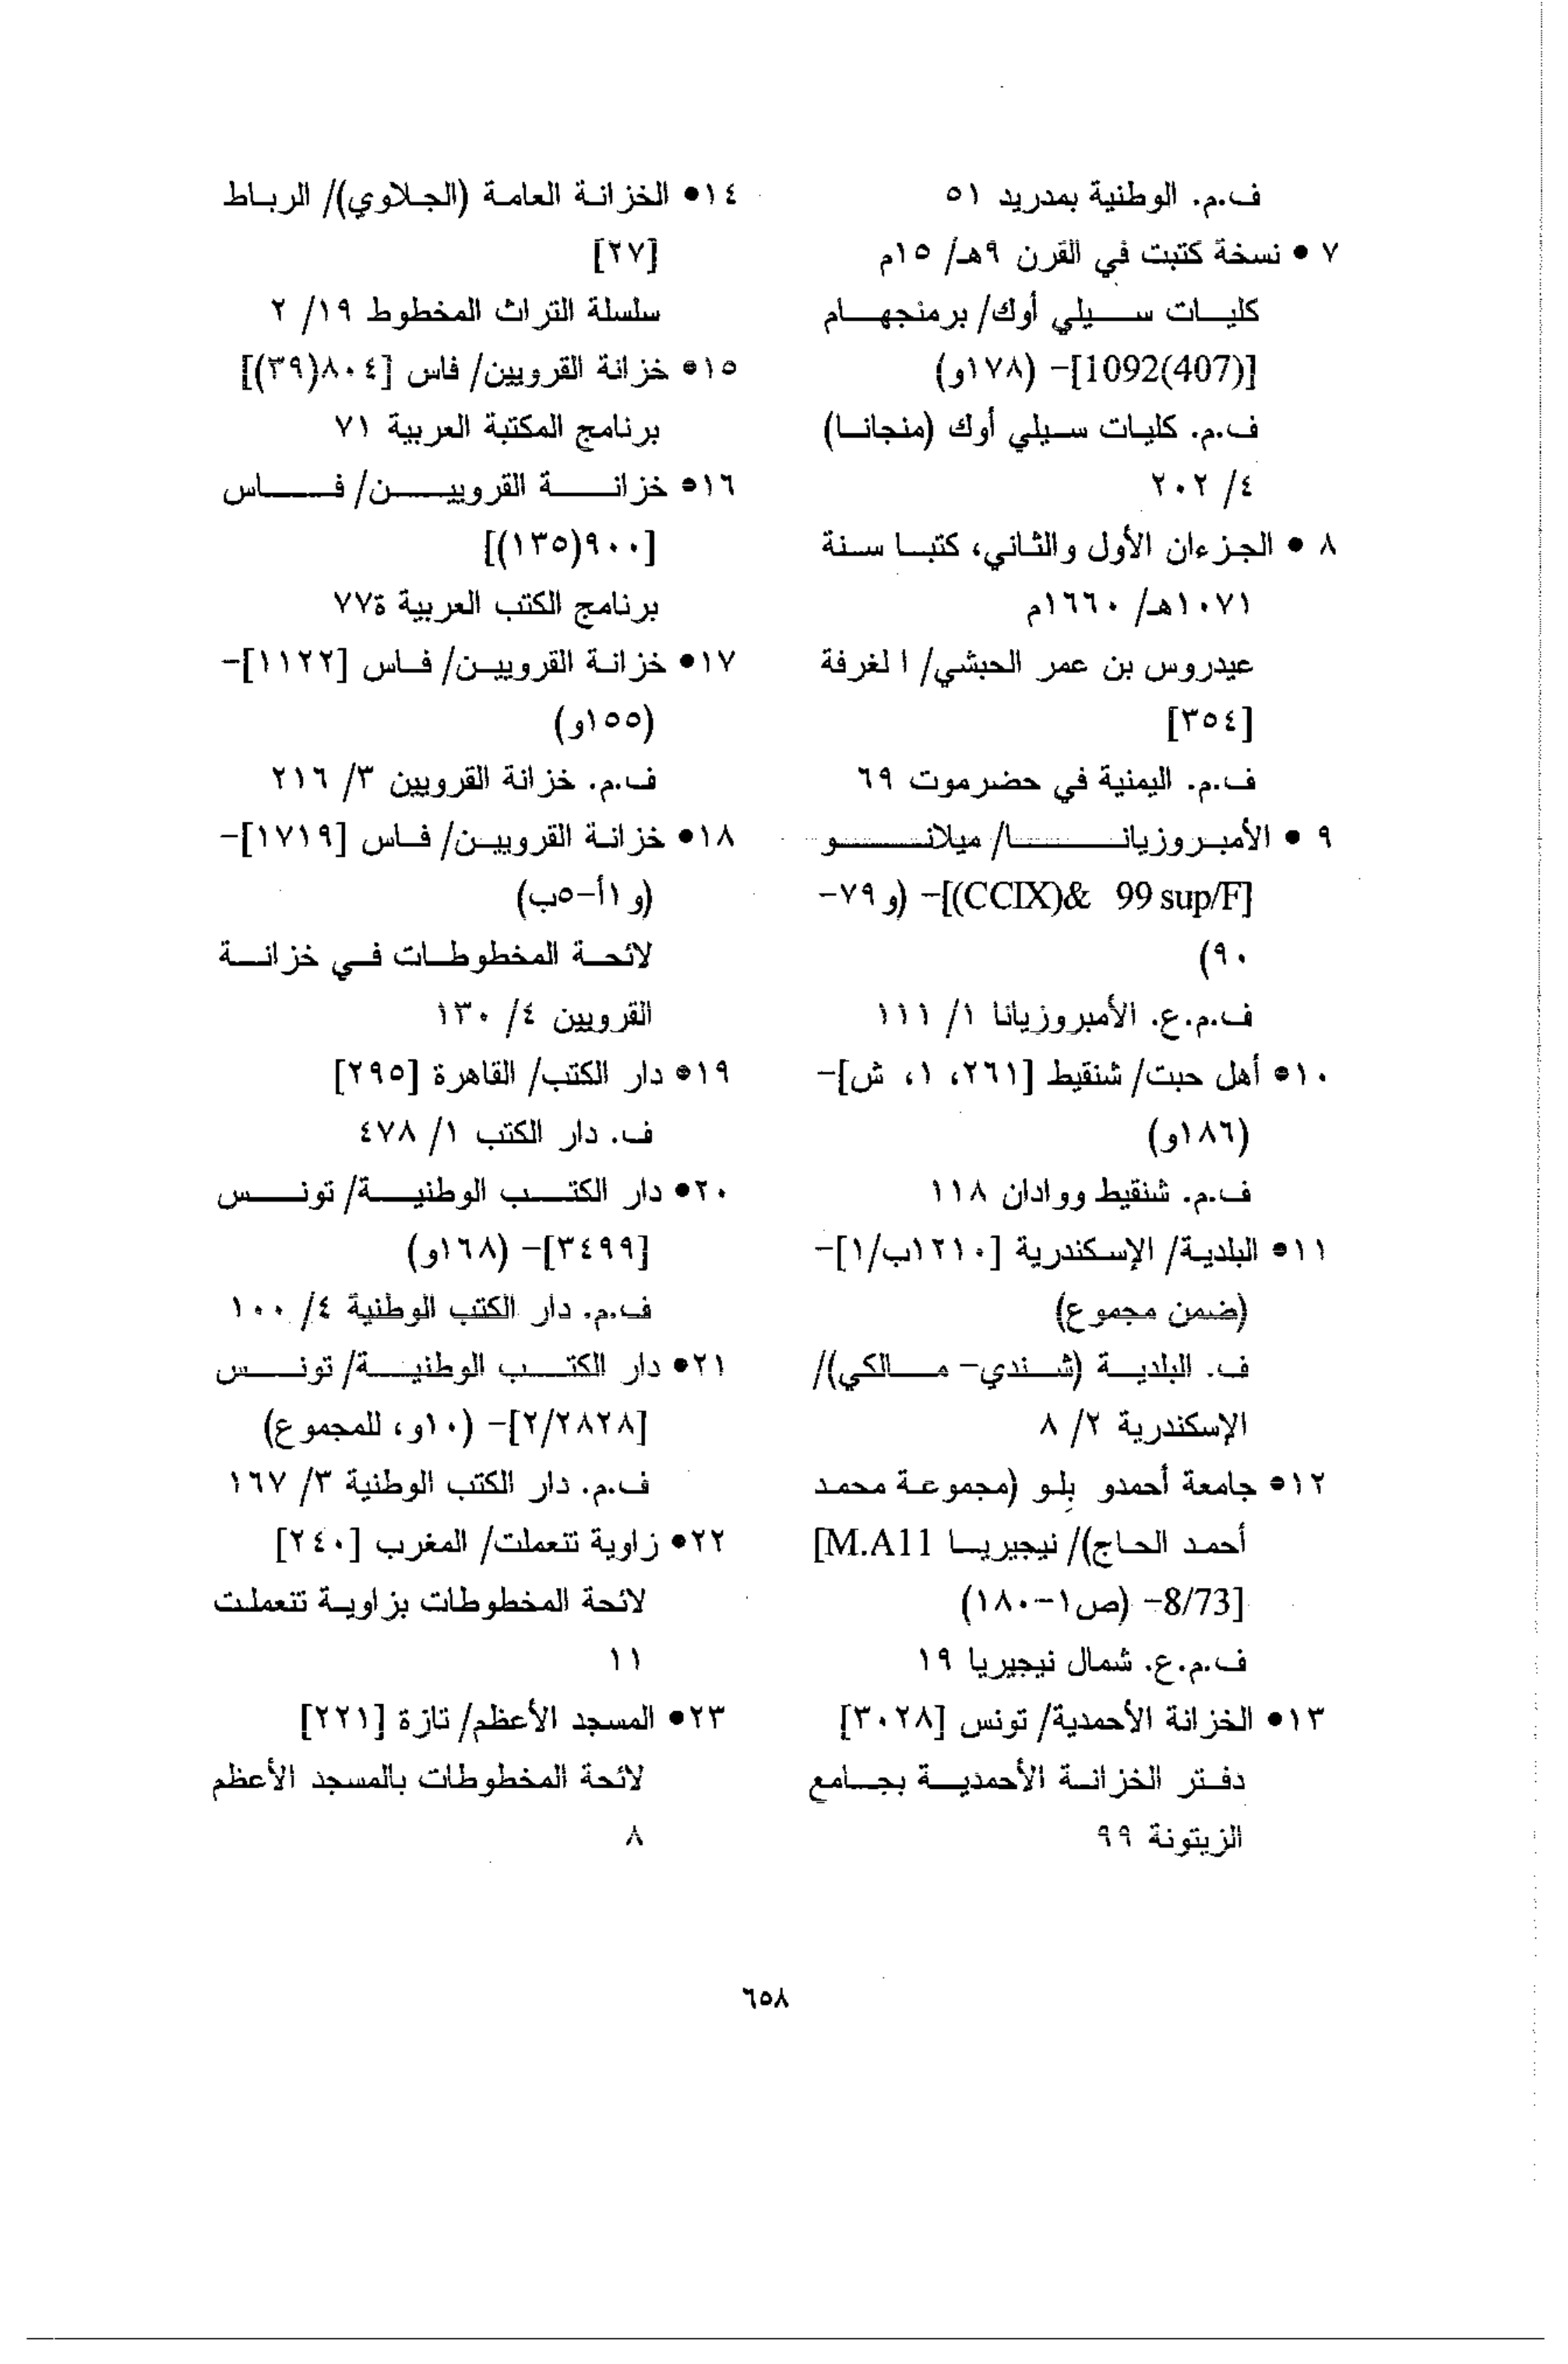 ف.م. الوطنية بمدريد ٥١
٧ • نسخة كتبت في القرن ٩هـ/ ١٥م
كليات سيلي أوك/ برمنجهام
[1092(407)]- (١٧٨و)
ف.م. كليات سيلي أوك (منجانا)
٤/ ٢٠٢
٨ • الجزءان الأول والثاني، كتبا سنة
١٠٧١هـ/ ١٦٦٠م
عيدروس بن عمر الحبشي/ ا لغرفة
[٣٥٤]
ف.م. اليمنية في حضرموت ٦٩
٩ • الأمبروزيانا/ ميلانو
[CCIX)& 99 sup/F)]- (و٧٩-
٩٠)
ف.م.ع. الأمبروزيانا ١/ ١١١
١٠• أهل حبت/ شنقيط [٢٦١، ١، ش]-
(١٨٦و)
ف.م. شنقيط ووادان ١١٨
١١• البلدية/ الإسكندرية [١٢١٠ب/١]-
(ضمن مجموع)
ف. البلدية (شندي- مالكي)/
الإسكندرية ٢/ ٨
١٢• جامعة أحمدو بِلو (مجموعة محمد
أحمد الحاج)/ نيجيريا M.A11]
[8/73- (ص١-١٨٠)
ف.م.ع. شمال نيجيريا ١٩
١٣• الخزانة الأحمدية/ تونس [٣٠٢٨]
دفتر الخزانة الأحمدية بجامع
الزيتونة ٩٩
١٤• الخزانة العامة (الجلاوي)/ الرباط
[٢٧]
سلسلة التراث المخطوط ١٩/ ٢
١٥• خزانة القرويين/ فاس [٨٠٤(٣٩)]
برنامج المكتبة العربية ٧١
١٦• خزانة القرويين/ فاس
[٩٠٠(١٣٥)]
برنامج الكتب العربية ة٧٧
١٧• خزانة القرويين/ فاس [١١٢٢]-
(١٥٥و)
ف.م. خزانة القرويين ٣/ ٢١٦
١٨• خزانة القرويين/ فاس [١٧١٩]-
(و١أ-٥ب)
لائحة المخطوطات في خزانة
القرويين ٤/ ١٣٠
١٩• دار الكتب/ القاهرة [٢٩٥]
ف. دار الكتب ١/ ٤٧٨
٢٠• دار الكتب الوطنية/ تونس
[٣٤٩٩]- (١٦٨و)
ف.م. دار الكتب الوطنية ٤/ ١٠٠
٢١• دار الكتب الوطنية/ تونس
[٢/٢٨٢٨]- (١٠و، للمجموع)
ف.م. دار الكتب الوطنية ٣/ ١٦٧
٢٢• زاوية تنعملت/ المغرب [٢٤٠]
لائحة المخطوطات بزاوية تنعملت
١١
٢٣• المسجد الأعظم/ تازة [٢٢١]
لائحة المخطوطات بالمسجد الأعظم
٨
٦٥٨